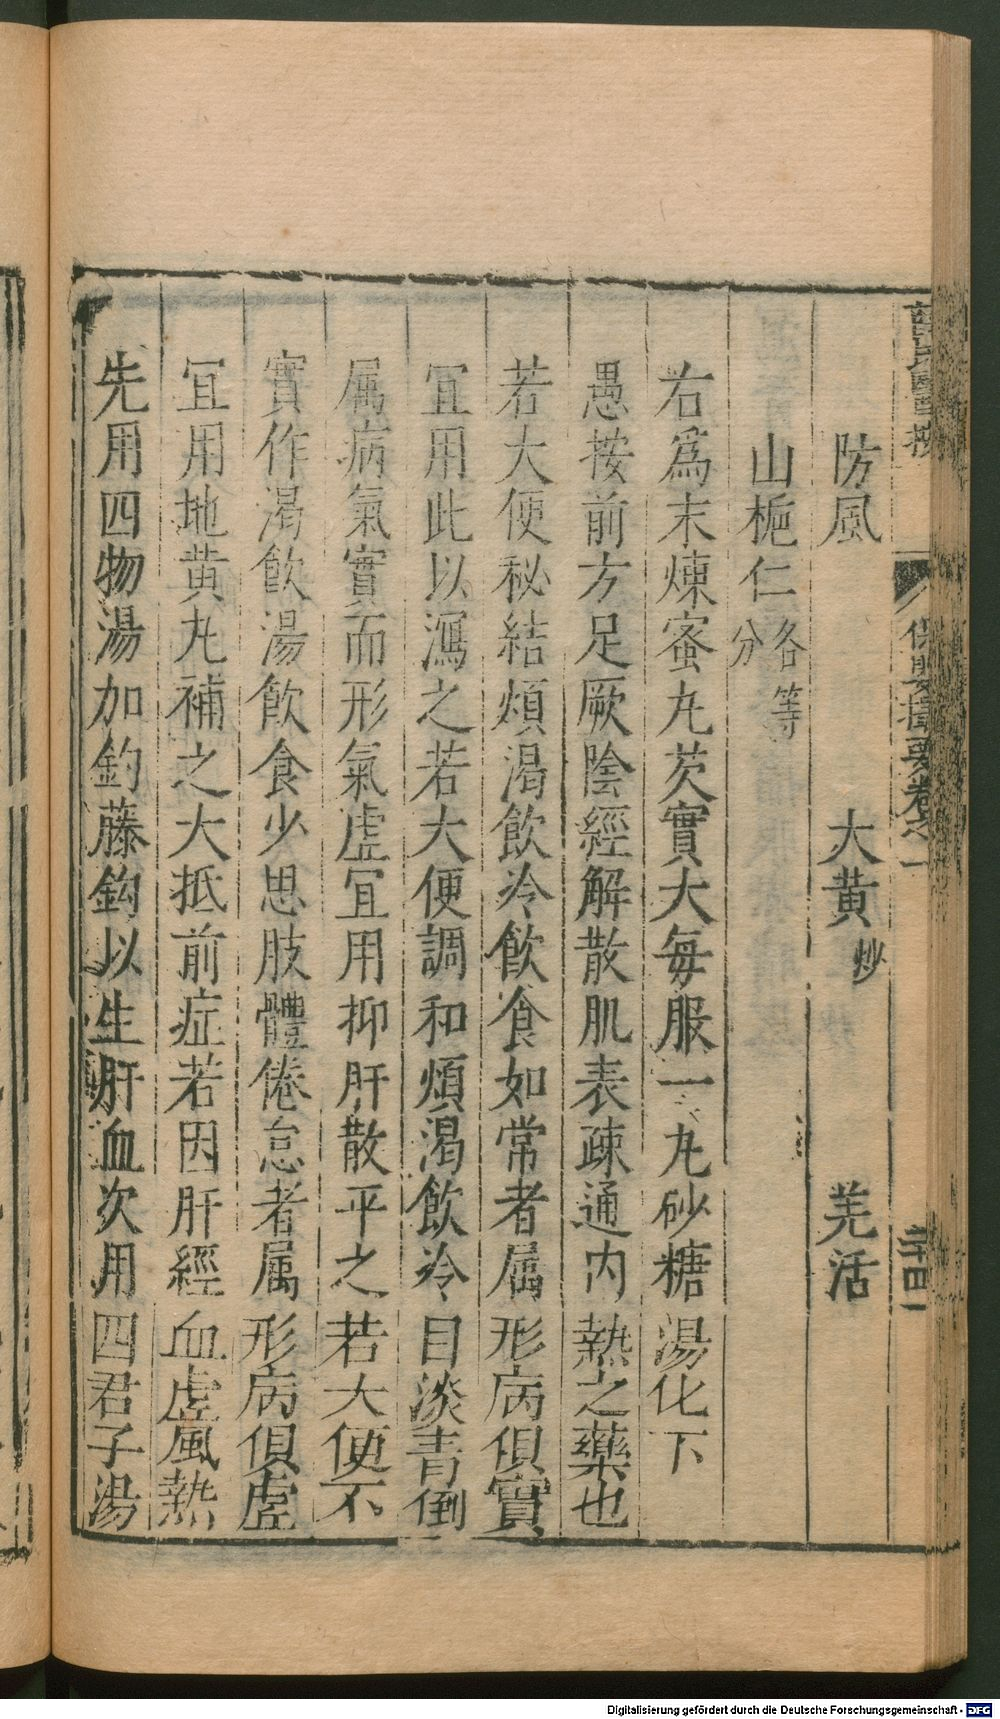 薛氏醫按 保嬰撮要卷之一 二十四
防風 大黄炒 羌活
山梔仁各等分
右爲末煉蜜丸芡實大每服一丸砂糖湯化下
愚按前方足厥陰經解散肌表疎通内熱之藥也
若大便秘結煩渴飲冷飲食如常者属形病俱實
冝用此以瀉之若大便調和煩渴飲冷目淡青倒
属病氣實而形氣虚冝用抑肝散平之若大便不
實作渴飲湯飲食少思肢體倦怠者属形病俱虚
冝用地黄丸補之大抵前症若因肝經血虚風熱
先用四物湯加釣藤鈎以生肝血次用四君子湯
Digitalisierung gefördert durch die Deutsche Forschungsgemeinschaft - DFG